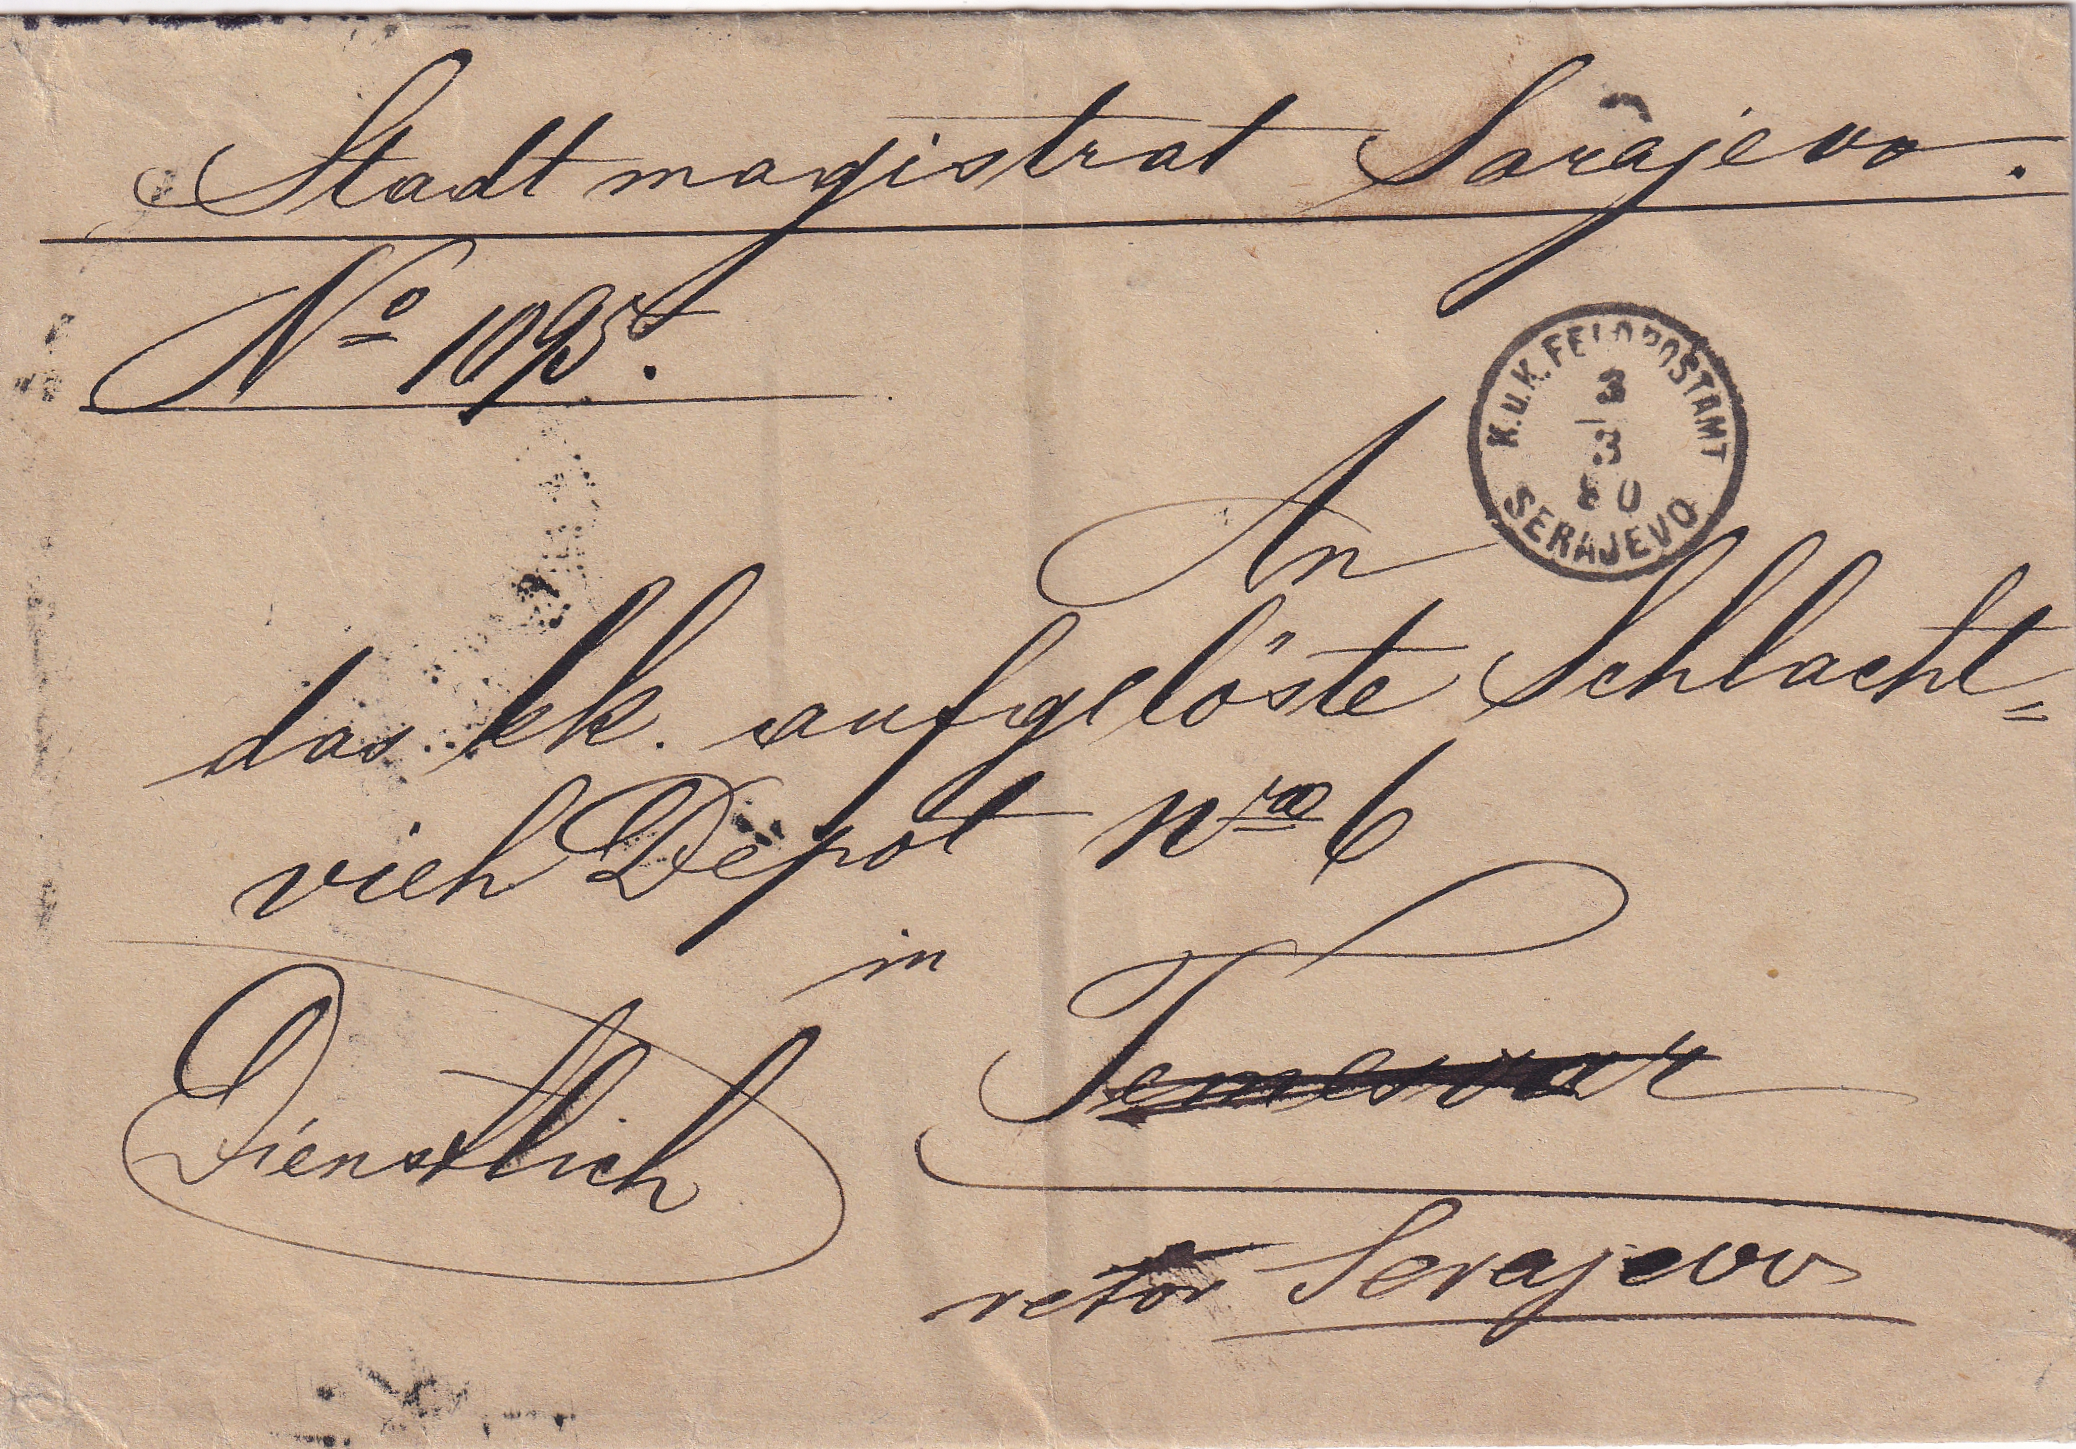 Stadtmagistrat Sarajevo.
No 1095.
K.u.K. FELDPOSTAMT
3
3
80
SERAJEVO
An
das kk. aufgelöste Schlacht=
vieh Depot Nro 6
in
Temesvar
Dienstlich
retour Serajevo